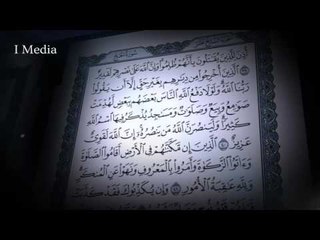 I Media
أُذِنَ لِلَّذِينَ يُقَٰتَلُونَ بِأَنَّهُمْ ظُلِمُواْ وَإِنَّ ٱللَّهَ عَلَىٰ نَصْرِهِمْ لَقَدِيرٌ
ٱلَّذِينَ أُخْرِجُواْ مِن دِيَٰرِهِم بِغَيْرِ حَقٍّ إِلَّآ أَن يَقُولُواْ
رَبُّنَا ٱللَّهُ وَلَوْلَا دَفْعُ ٱللَّهِ ٱلنَّاسَ بَعْضَهُم بِبَعْضٍ لَّهُدِّمَتْ
صَوَٰمِعُ وَبِيَعٌ وَصَلَوَٰتٌ وَمَسَٰجِدُ يُذْكَرُ فِيهَا ٱسْمُ ٱللَّهِ
كَثِيرًا وَلَيَنصُرَنَّ ٱللَّهُ مَن يَنصُرُهُۥٓ إِنَّ ٱللَّهَ لَقَوِيٌّ
عَزِيزٌ ٱلَّذِينَ إِن مَّكَّنَّٰهُمْ فِي ٱلْأَرْضِ أَقَامُواْ ٱلصَّلَوٰةَ
وَءَاتَوُاْ ٱلزَّكَوٰةَ وَأَمَرُواْ بِٱلْمَعْرُوفِ وَنَهَوْاْ عَنِ ٱلْمُنكَرِ
وَلِلَّهِ عَٰقِبَةُ ٱلْأُمُورِ وَإِن يُكَذِّبُوكَ فَقَدْ كَذَّبَتْ